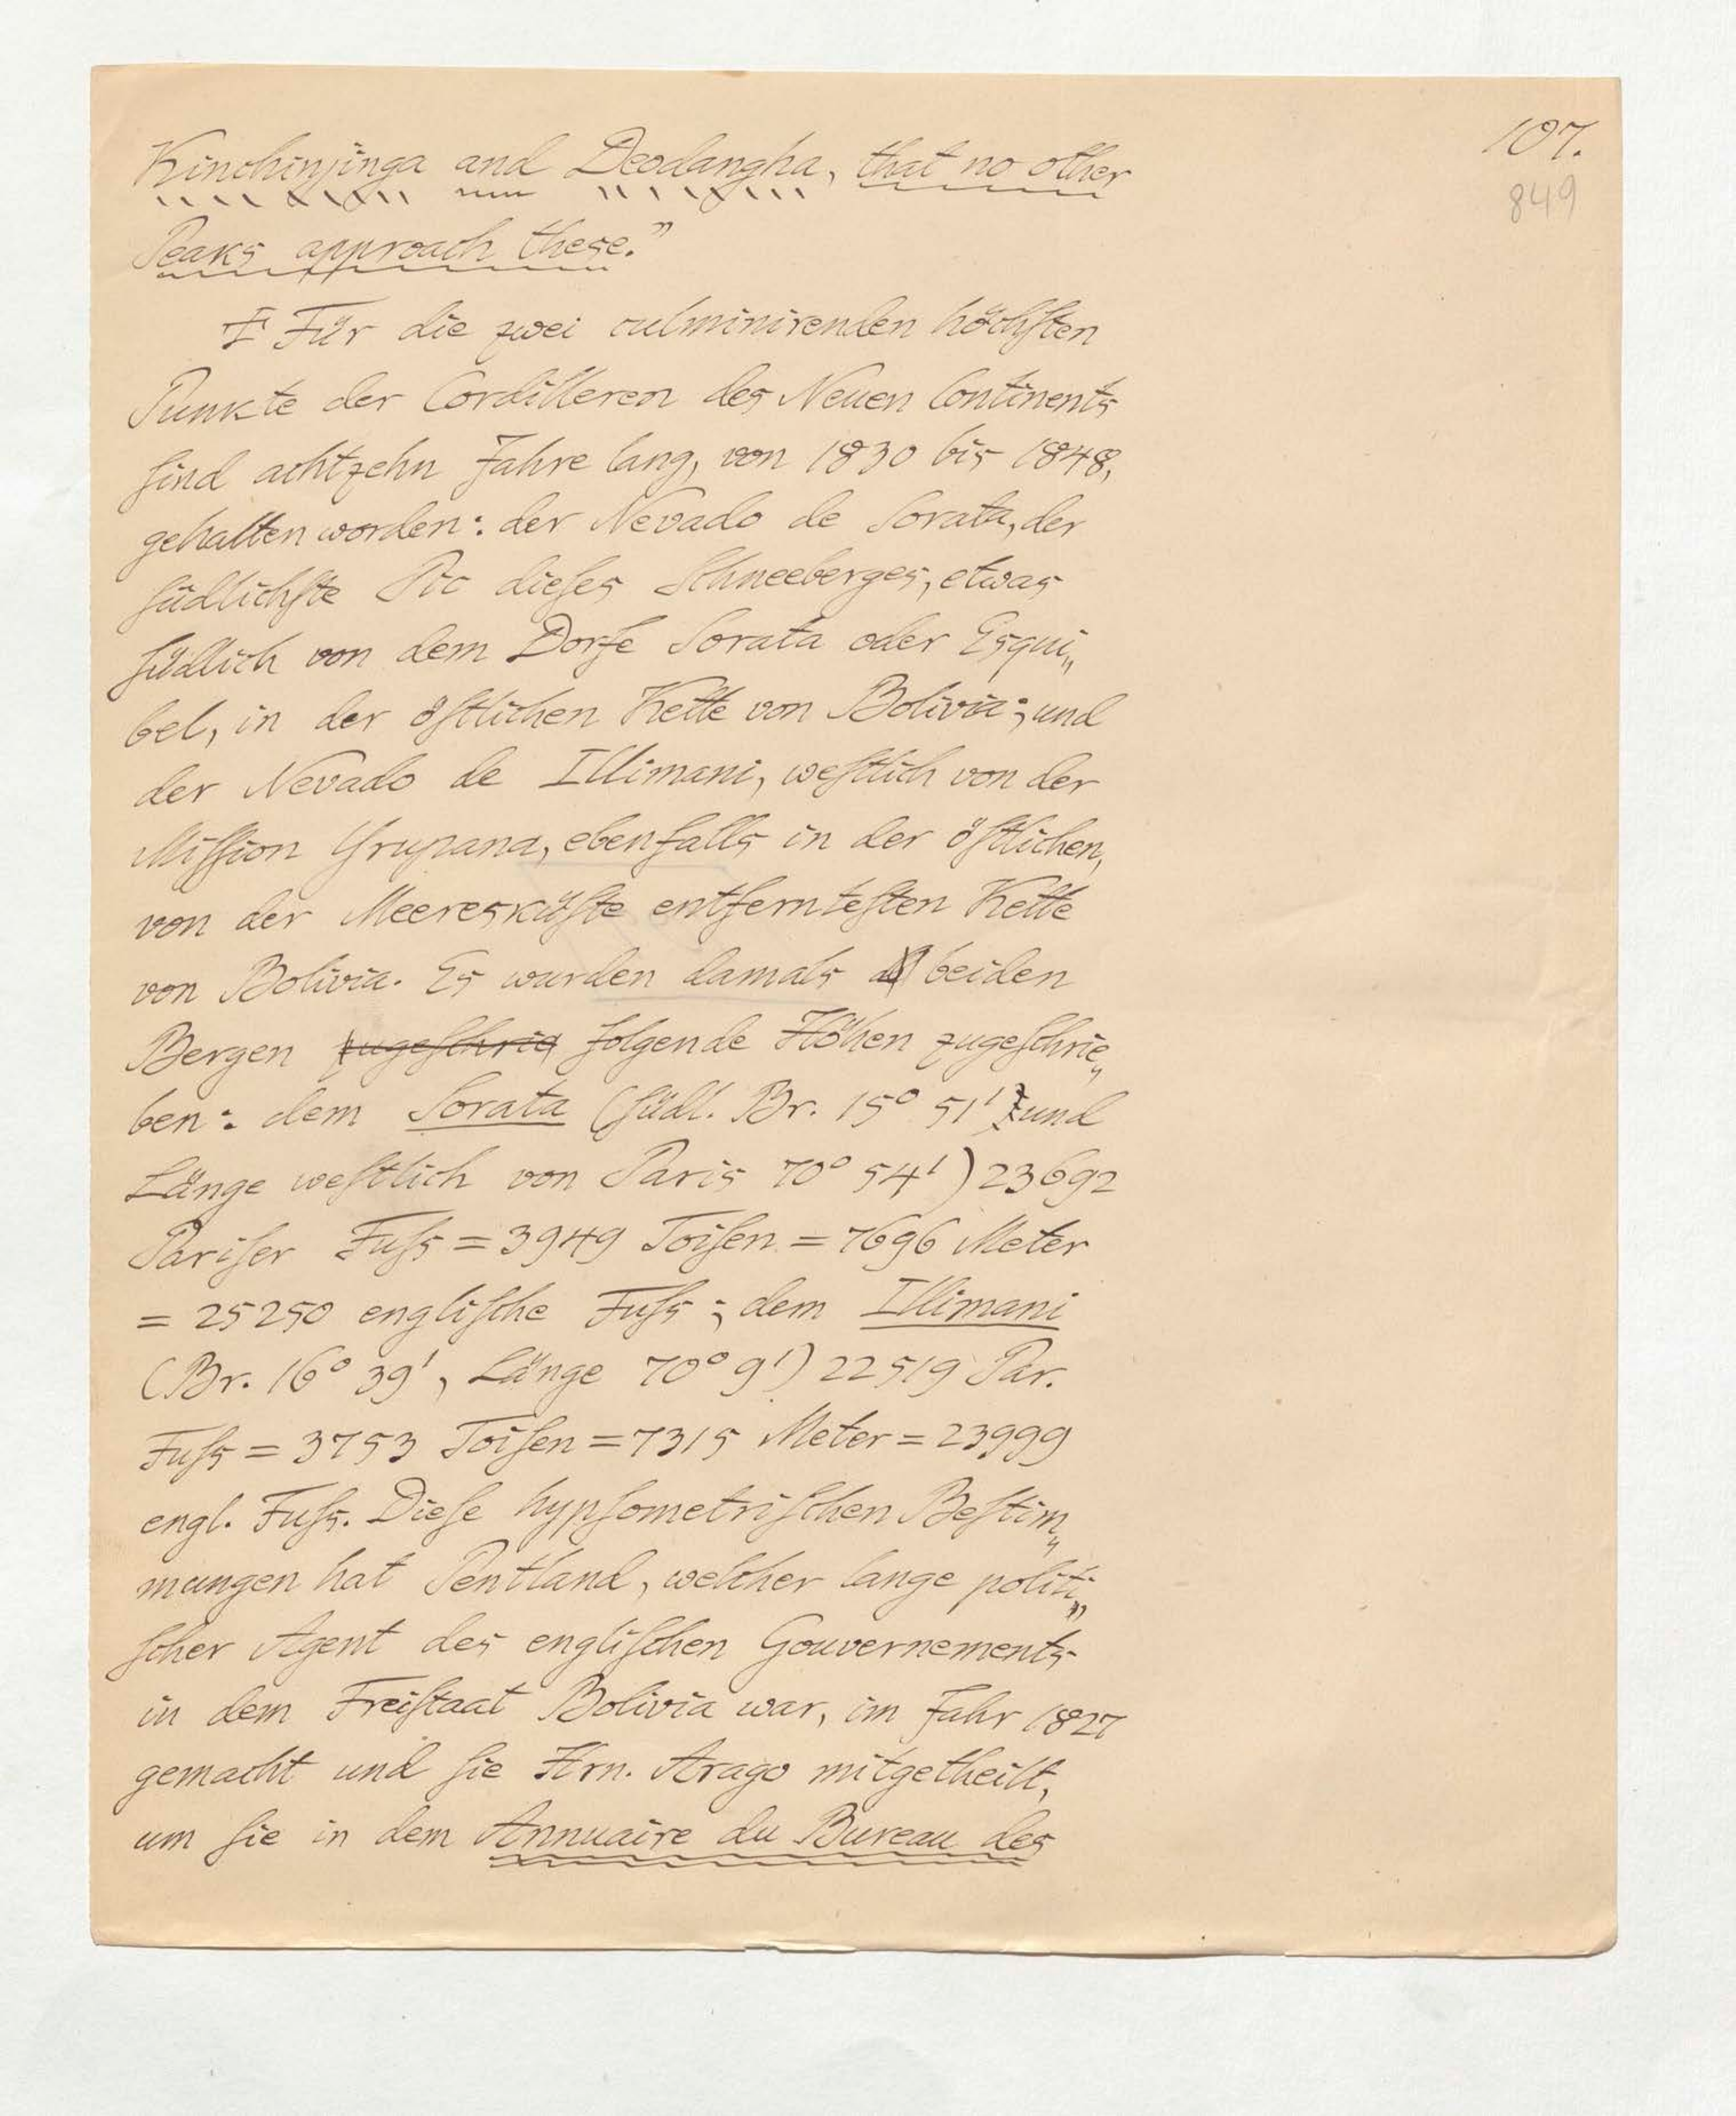 107.
849
Kinchinjinga and Deodangha, that no other
Peaks approach these.”
Für die zwei culminirenden höchſten
Punkte der Cordilleren des Neuen Continents
ſind achtzehn Jahre lang, von 1830 bis 1848,
gehalten worden: der Nevado de Sorata, der
ſüdlichſte Pic dieſes Schneeberges, etwas
ſüdlich von dem Dorfe Sorata oder Esqui„
bel, in der öſtlichen Kette von Bolivia; und
der Nevado de Illimani, weſtlich von der
Miſſion Yrupana, ebenfalls in der öſtlichen,
von der Meeresküſte entfernteſten Kette
von Bolivia. Es wurden damals beiden
Bergen zugeſchrie folgende Höhen zugeſchrie„
ben: dem Sorata (ſüdl. Br. 15° 51' und
Länge weſtlich von Paris 70° 54') 23692
Pariſer Fuſs = 3949 Toiſen = 7696 Meter
= 25250 engliſche Fuſs; dem Illimani
(Br. 16° 39', Länge 70° 9') 22519 Par.
Fuſs = 3753 Toiſen = 7315 Meter = 23999
engl. Fuſs. Dieſe hypſometriſchen Beſtim„
mungen hat Pentland, welcher lange politi„
ſcher Agent des engliſchen Gouvernements
in dem Freiſtaat Bolivia war, im Jahr 1827
gemacht und ſie Hrn. Arago mitgetheilt,
um ſie in dem Annuaire du Bureau des